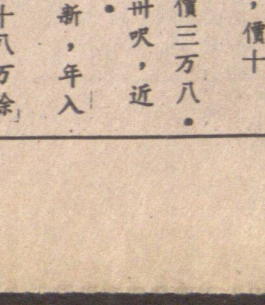 ，價十
價三万八．
．卅呎，近
新，年入
十八万餘